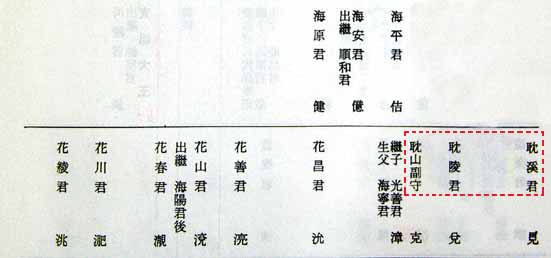 海平君 佶
海安君 億
出繼 順和君
海原君 健
耽溪君 見
耽陵君 兌
耽山副守 克
繼子 光善君 漳
生父 海寧君
花昌君 沇
花善君
花山君
出繼 海陽君後
花春君
花川君 淝
花綾君 洮